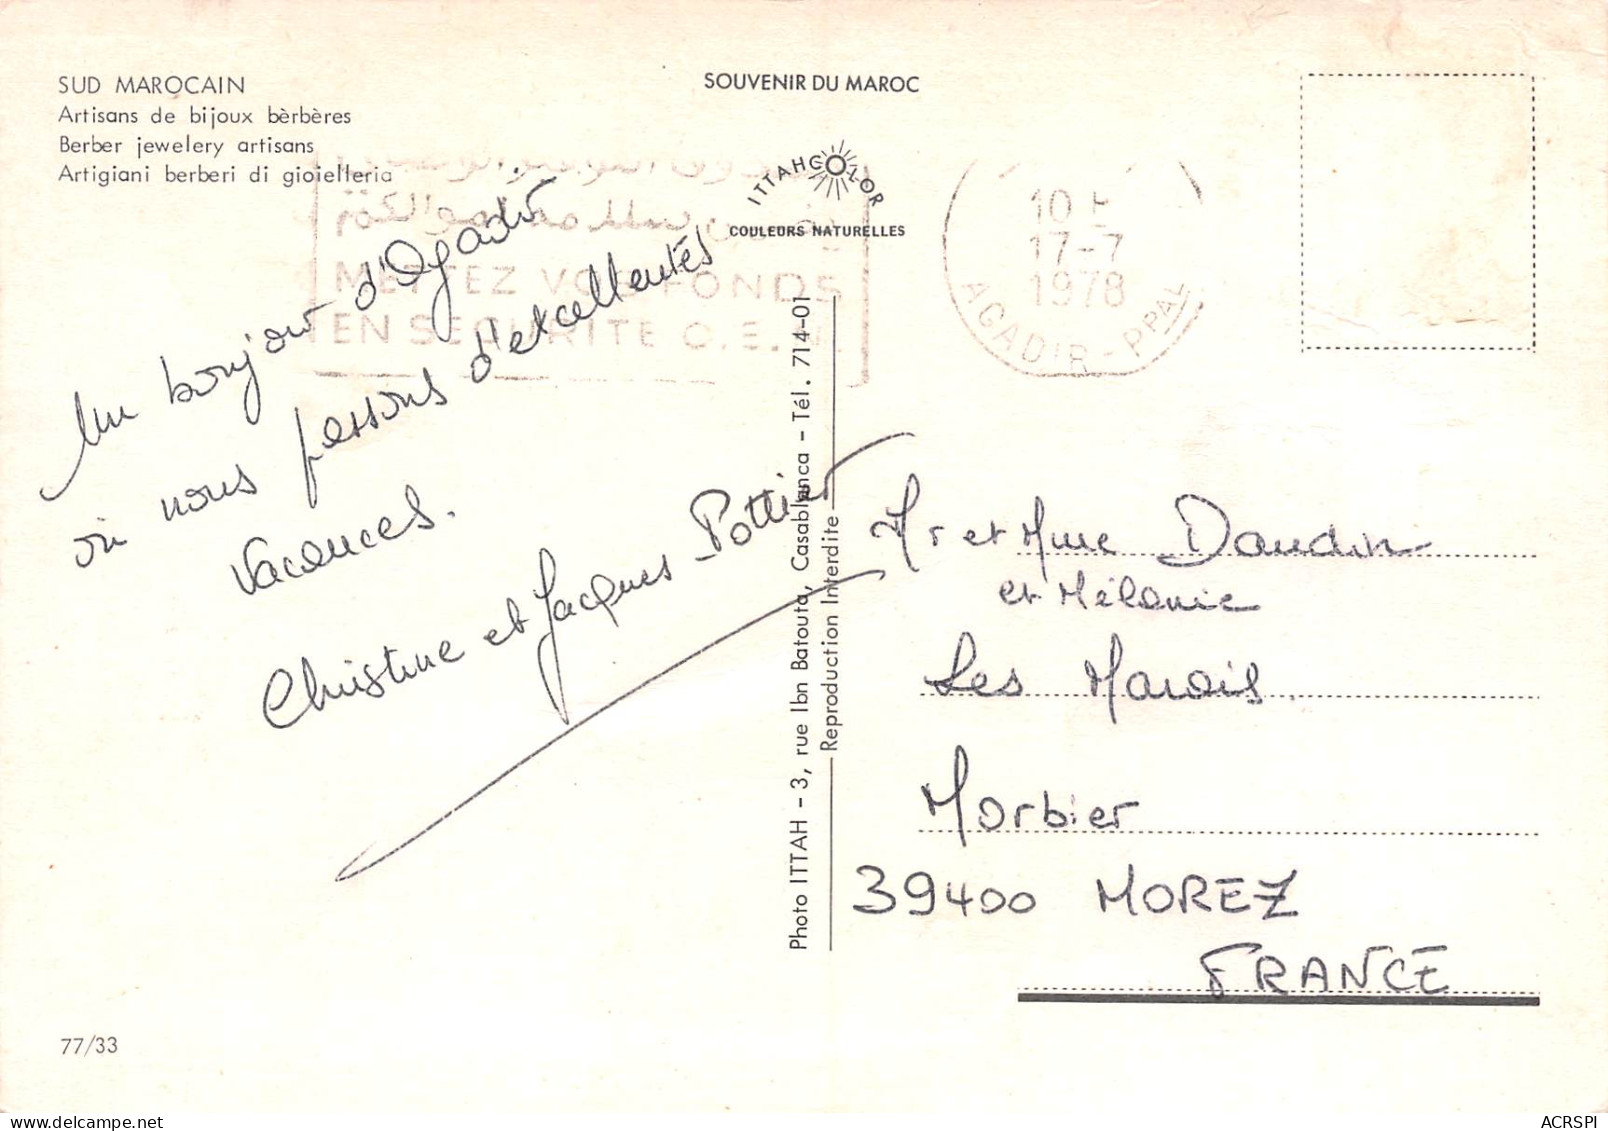 SUD MAROCAIN
Artisans de bijoux bèrbères
Berber jewelery artisans
Artigiani berberi di gioielleria
SOUVENIR DU MAROC
ITTAHCOLOR
COULEURS NATURELLES
METTEZ VOS FONDS
EN SECURITE C.E.N.
10 H
17-7
1978
AGADIR-PPAL
Un bonjour d'Agadir
où nous passons d'excellentes
vacances.
Christine et Jacques Pottier
Photo ITTAH - 3, rue Ibn Batouta, Casablanca - Tél. 714-01
Reproduction Interdite
Mr et Mme Daudin
et Mélanie
Les Marais.
Morbier
39400 MOREZ
FRANCE
77/33
ACRSPI